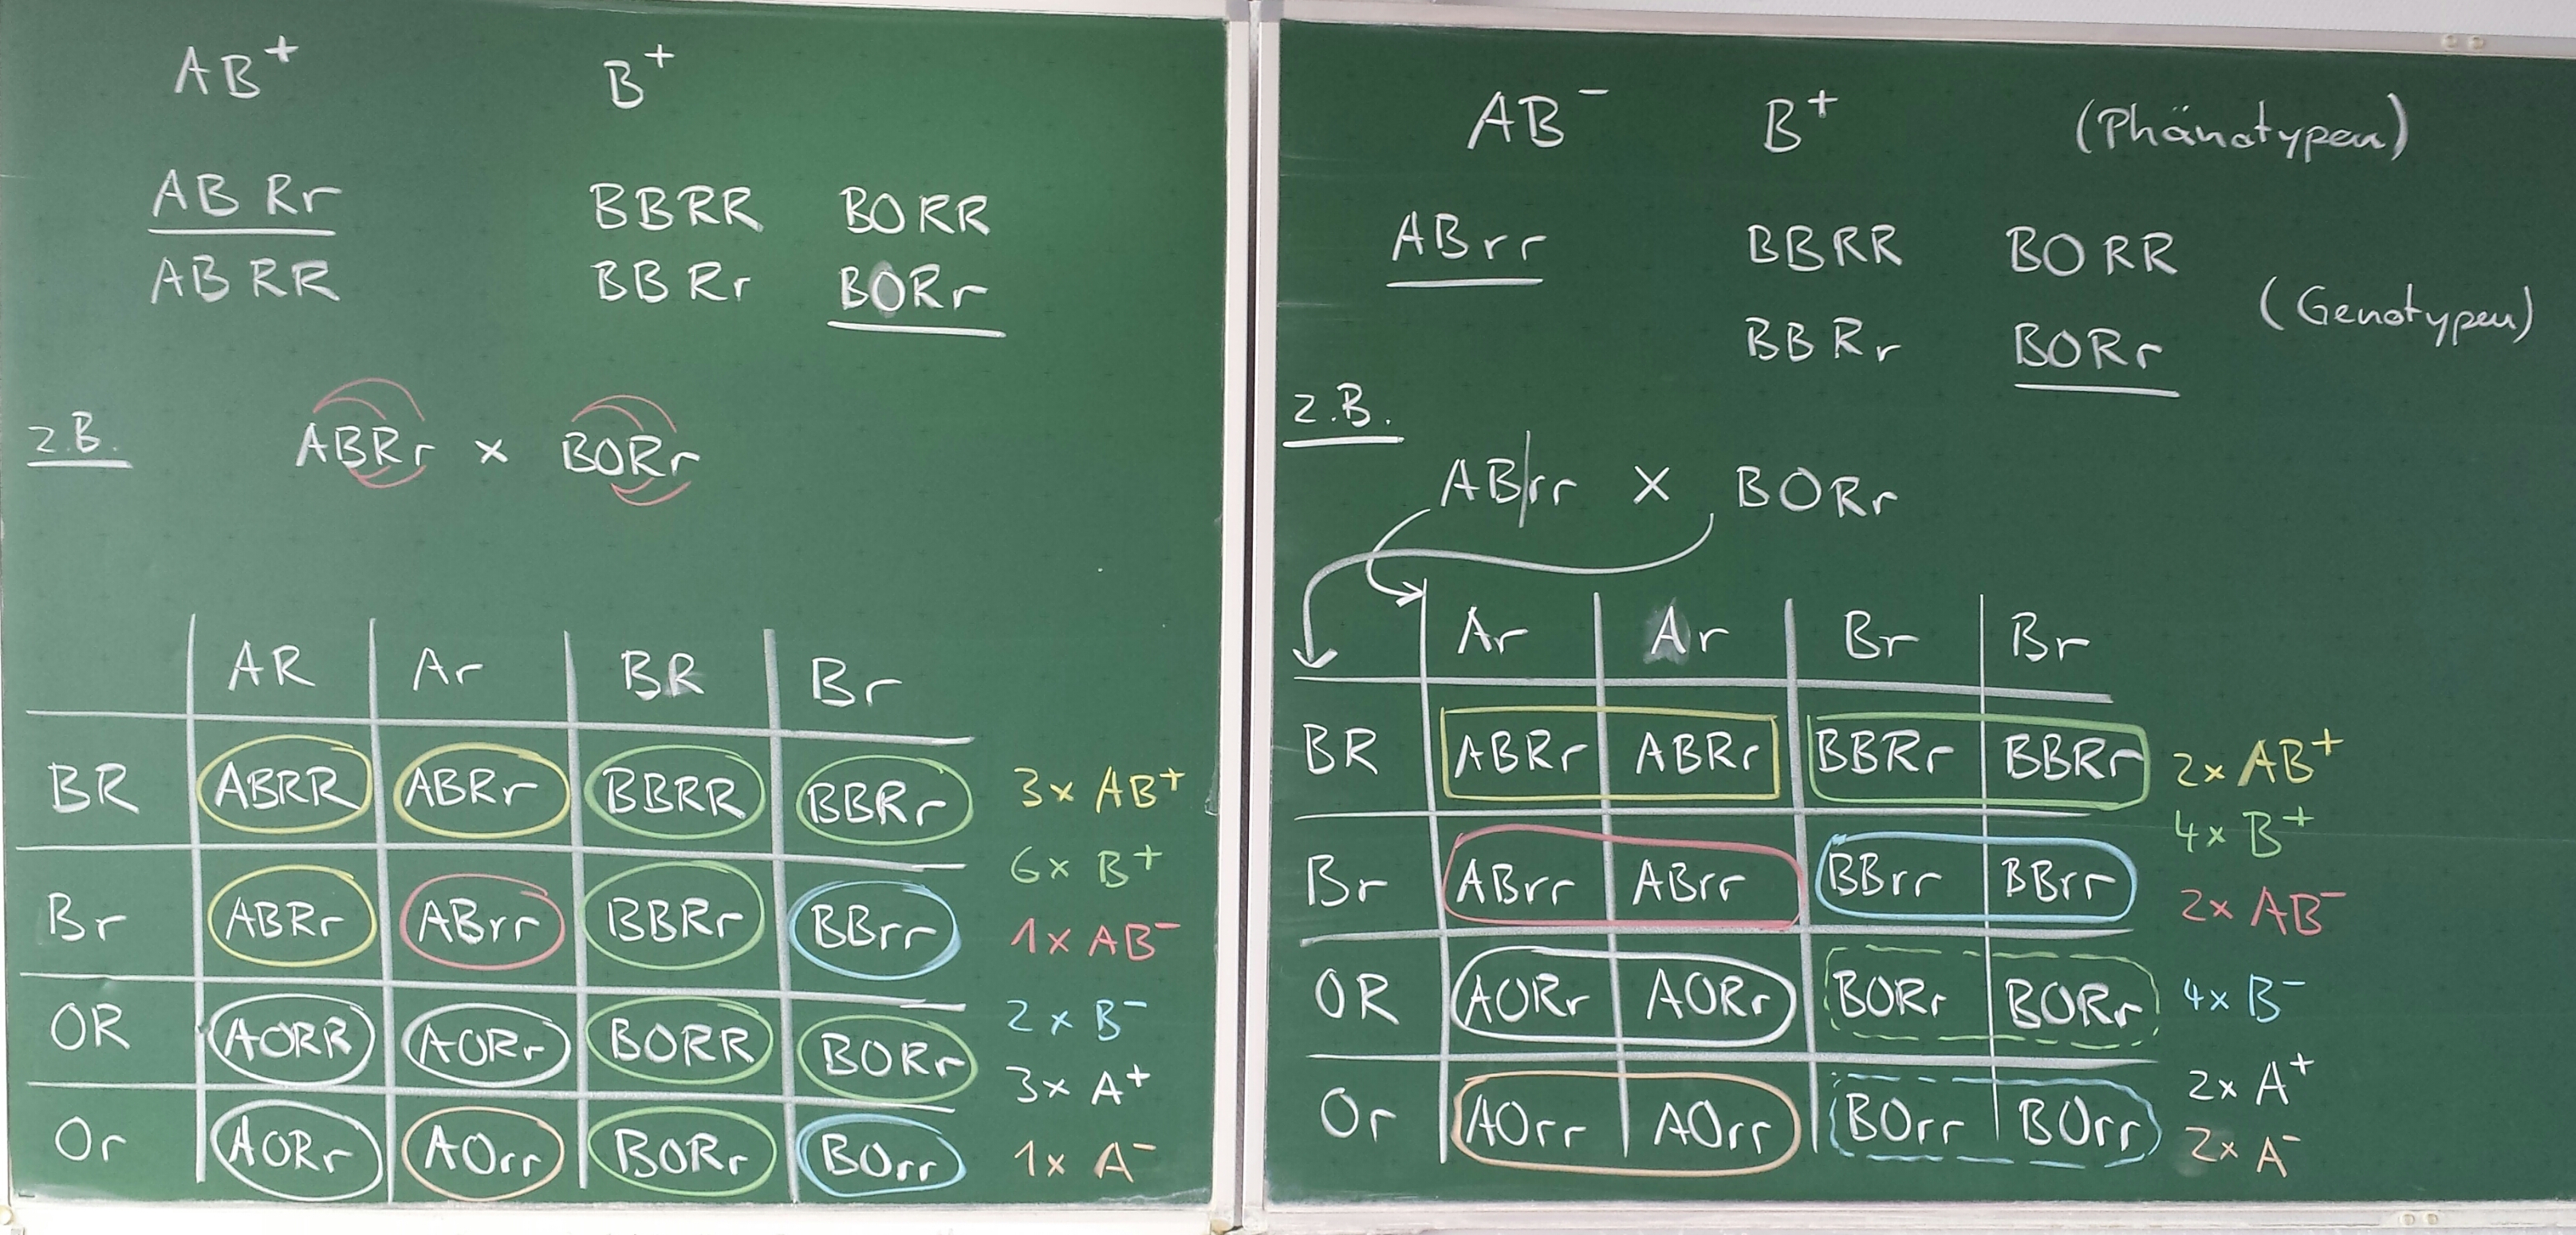 AB⁺ B⁺
AB Rr BBRR BORR
ABRR BBRr BORr
z.B. ABRr x BORr
AR Ar BR Br
BR ABRR ABRr BBRR BBRr
Br ABRr ABrr BBRr BBrr
OR AORR AORr BORR BORr
Or AORr AOrr BORr BOrr
3x AB⁺
6x B⁺
1x AB⁻
2x B⁻
3x A⁺
1x A⁻
AB⁻ B⁺ (Phänotypen)
ABrr BBRR BORR
BBRr BORr
(Genotypen)
z.B.
AB|rr x BORr
Ar Ar Br Br
BR ABRr ABRr BBRr BBRr
Br ABrr ABrr BBrr BBrr
OR AORr AORr BORr BORr
Or AOrr AOrr BOrr BOrr
2x AB⁺
4x B⁺
2x AB⁻
4x B⁻
2x A⁺
2x A⁻